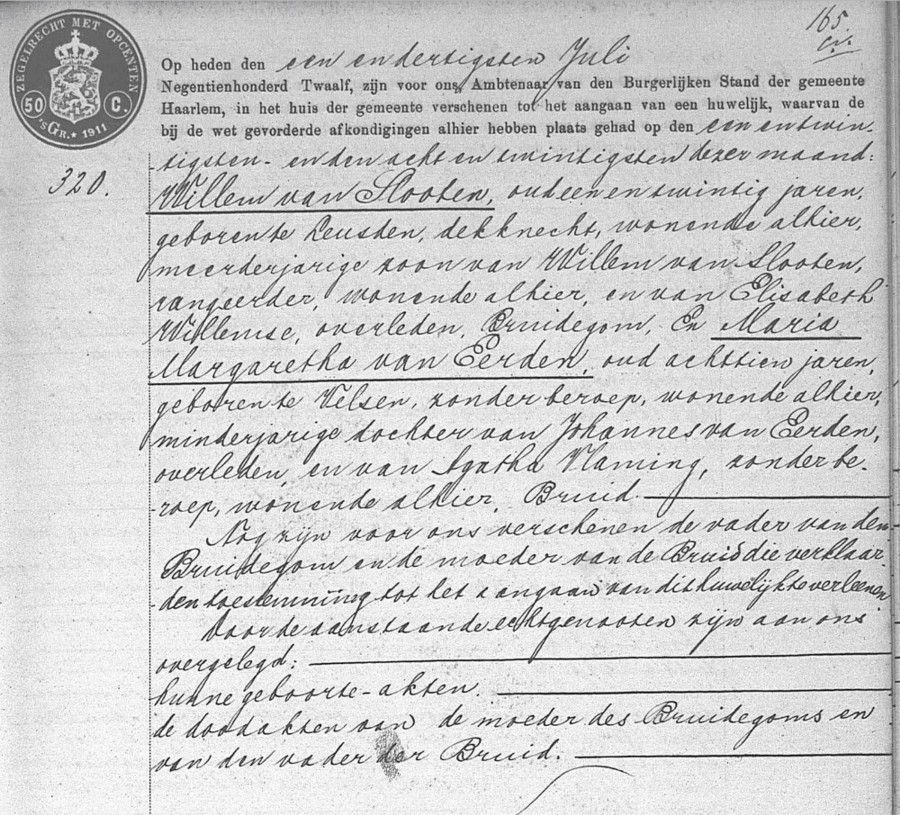 165.
ZEGELRECHT MET OPCENTEN
50 C.
'sGR. * 1911
Op heden den een en dertigsten Juli
Negentienhonderd Twaalf, zijn voor ons Ambtenaar van den Burgerlijken Stand der gemeente
Haarlem, in het huis der gemeente verschenen tot het aangaan van een huwelijk, waarvan de
bij de wet gevorderde afkondigingen alhier hebben plaats gehad op den een en twin-
320.
-tigsten- en den acht en twintigsten dezer maand:
Willem van Slooten, oud een en twintig jaren,
geboren te Leusden, dekknecht, wonende alhier,
meerderjarige zoon van Willem van Slooten,
rangeerder, wonende alhier, en van Elisabeth
Willemse, overleden, Bruidegom, En Maria
Margaretha van Eerden, oud achttien jaren,
geboren te Velsen, zonder beroep, wonende alhier,
minderjarige dochter van Johannes van Eerden,
overleden, en van Agatha Vlaming, zonder be-
-roep, wonende alhier, Bruid.
Nog zijn voor ons verschenen de vader van den
Bruidegom en de moeder van de Bruid die verklaar-
-den toestemming tot het aangaan van dit huwelijk te verleenen
Door de aanstaande echtgenooten zijn aan ons
overgelegd:
hunne geboorte-akten.
de doodakten van de moeder des Bruidegoms en
van den vader der Bruid.